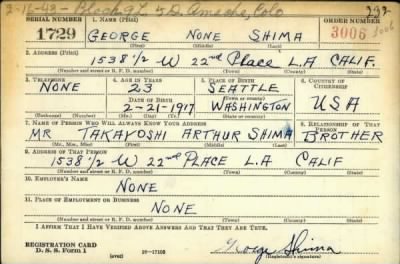 2-16-43- Block 9L 5D. Amache, Colo
SERIAL NUMBER 1. NAME (Print) ORDER NUMBER
1729 GEORGE NONE SHIMA 3006
(First) (Middle) (Last)
2. ADDRESS (Print)
1538 1/2 W 22nd PLACE L.A CALIF.
(Number and street or R. F. D. number) (Town) (County) (State)
3. TELEPHONE 4. AGE IN YEARS 5. PLACE OF BIRTH 6. COUNTRY OF CITIZENSHIP
NONE 23 SEATTLE
DATE OF BIRTH (Town or county)
2-21-1917 WASHINGTON USA
(Mo.) (Day) (Yr.) (State or country)
7. NAME OF PERSON WHO WILL ALWAYS KNOW YOUR ADDRESS 8. RELATIONSHIP OF THAT PERSON
MR TAKAYOSHI ARTHUR SHIMA BROTHER
(Mr., Mrs., Miss) (First) (Middle) (Last)
9. ADDRESS OF THAT PERSON
1538 1/2 W 22nd PLACE L.A CALIF
(Number and street or R. F. D. number) (Town) (County) (State)
10. EMPLOYER'S NAME
NONE
11. PLACE OF EMPLOYMENT OR BUSINESS
NONE
(Number and street or R. F. D. number) (Town) (County) (State)
I AFFIRM THAT I HAVE VERIFIED ABOVE ANSWERS AND THAT THEY ARE TRUE.
REGISTRATION CARD
D. S. S. Form 1 16-17105 George Shima
(Registrant's signature)